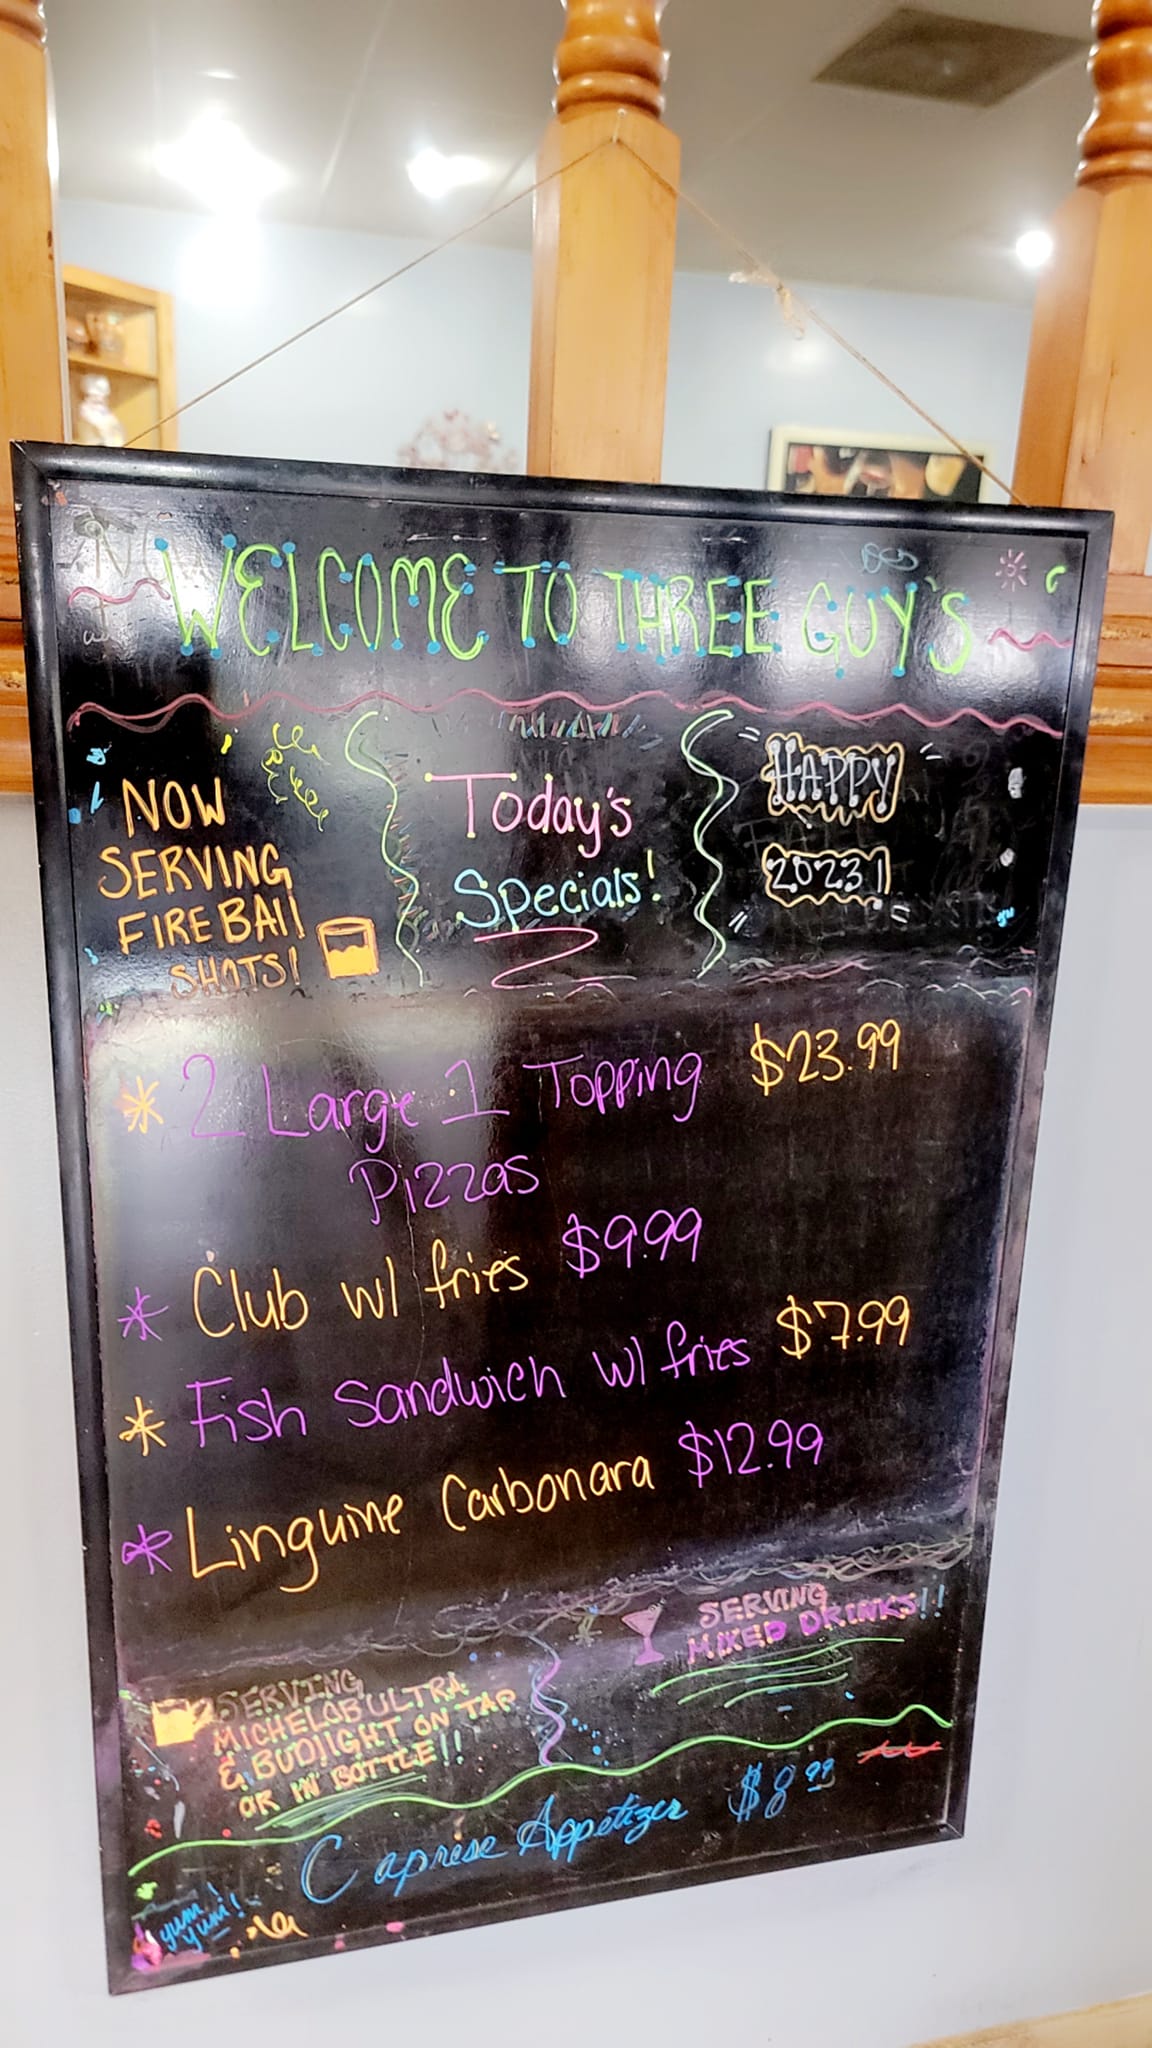 WELCOME TO THREE GUY'S
NOW
SERVING
FIREBAll
SHOTS!
Today's
Specials!
HAPPY
2023!
* 2 Large 1 Topping $23.99
Pizzas
* Club w/ fries $9.99
* Fish Sandwich w/ fries $7.99
* Linguine Carbonara $12.99
SERVING
MIXED DRINKS!!
SERVING
MICHELOB ULTRA
& BUDLIGHT ON TAP
OR IN BOTTLE!!
Caprese Appetizer $8.99
yum
yum!